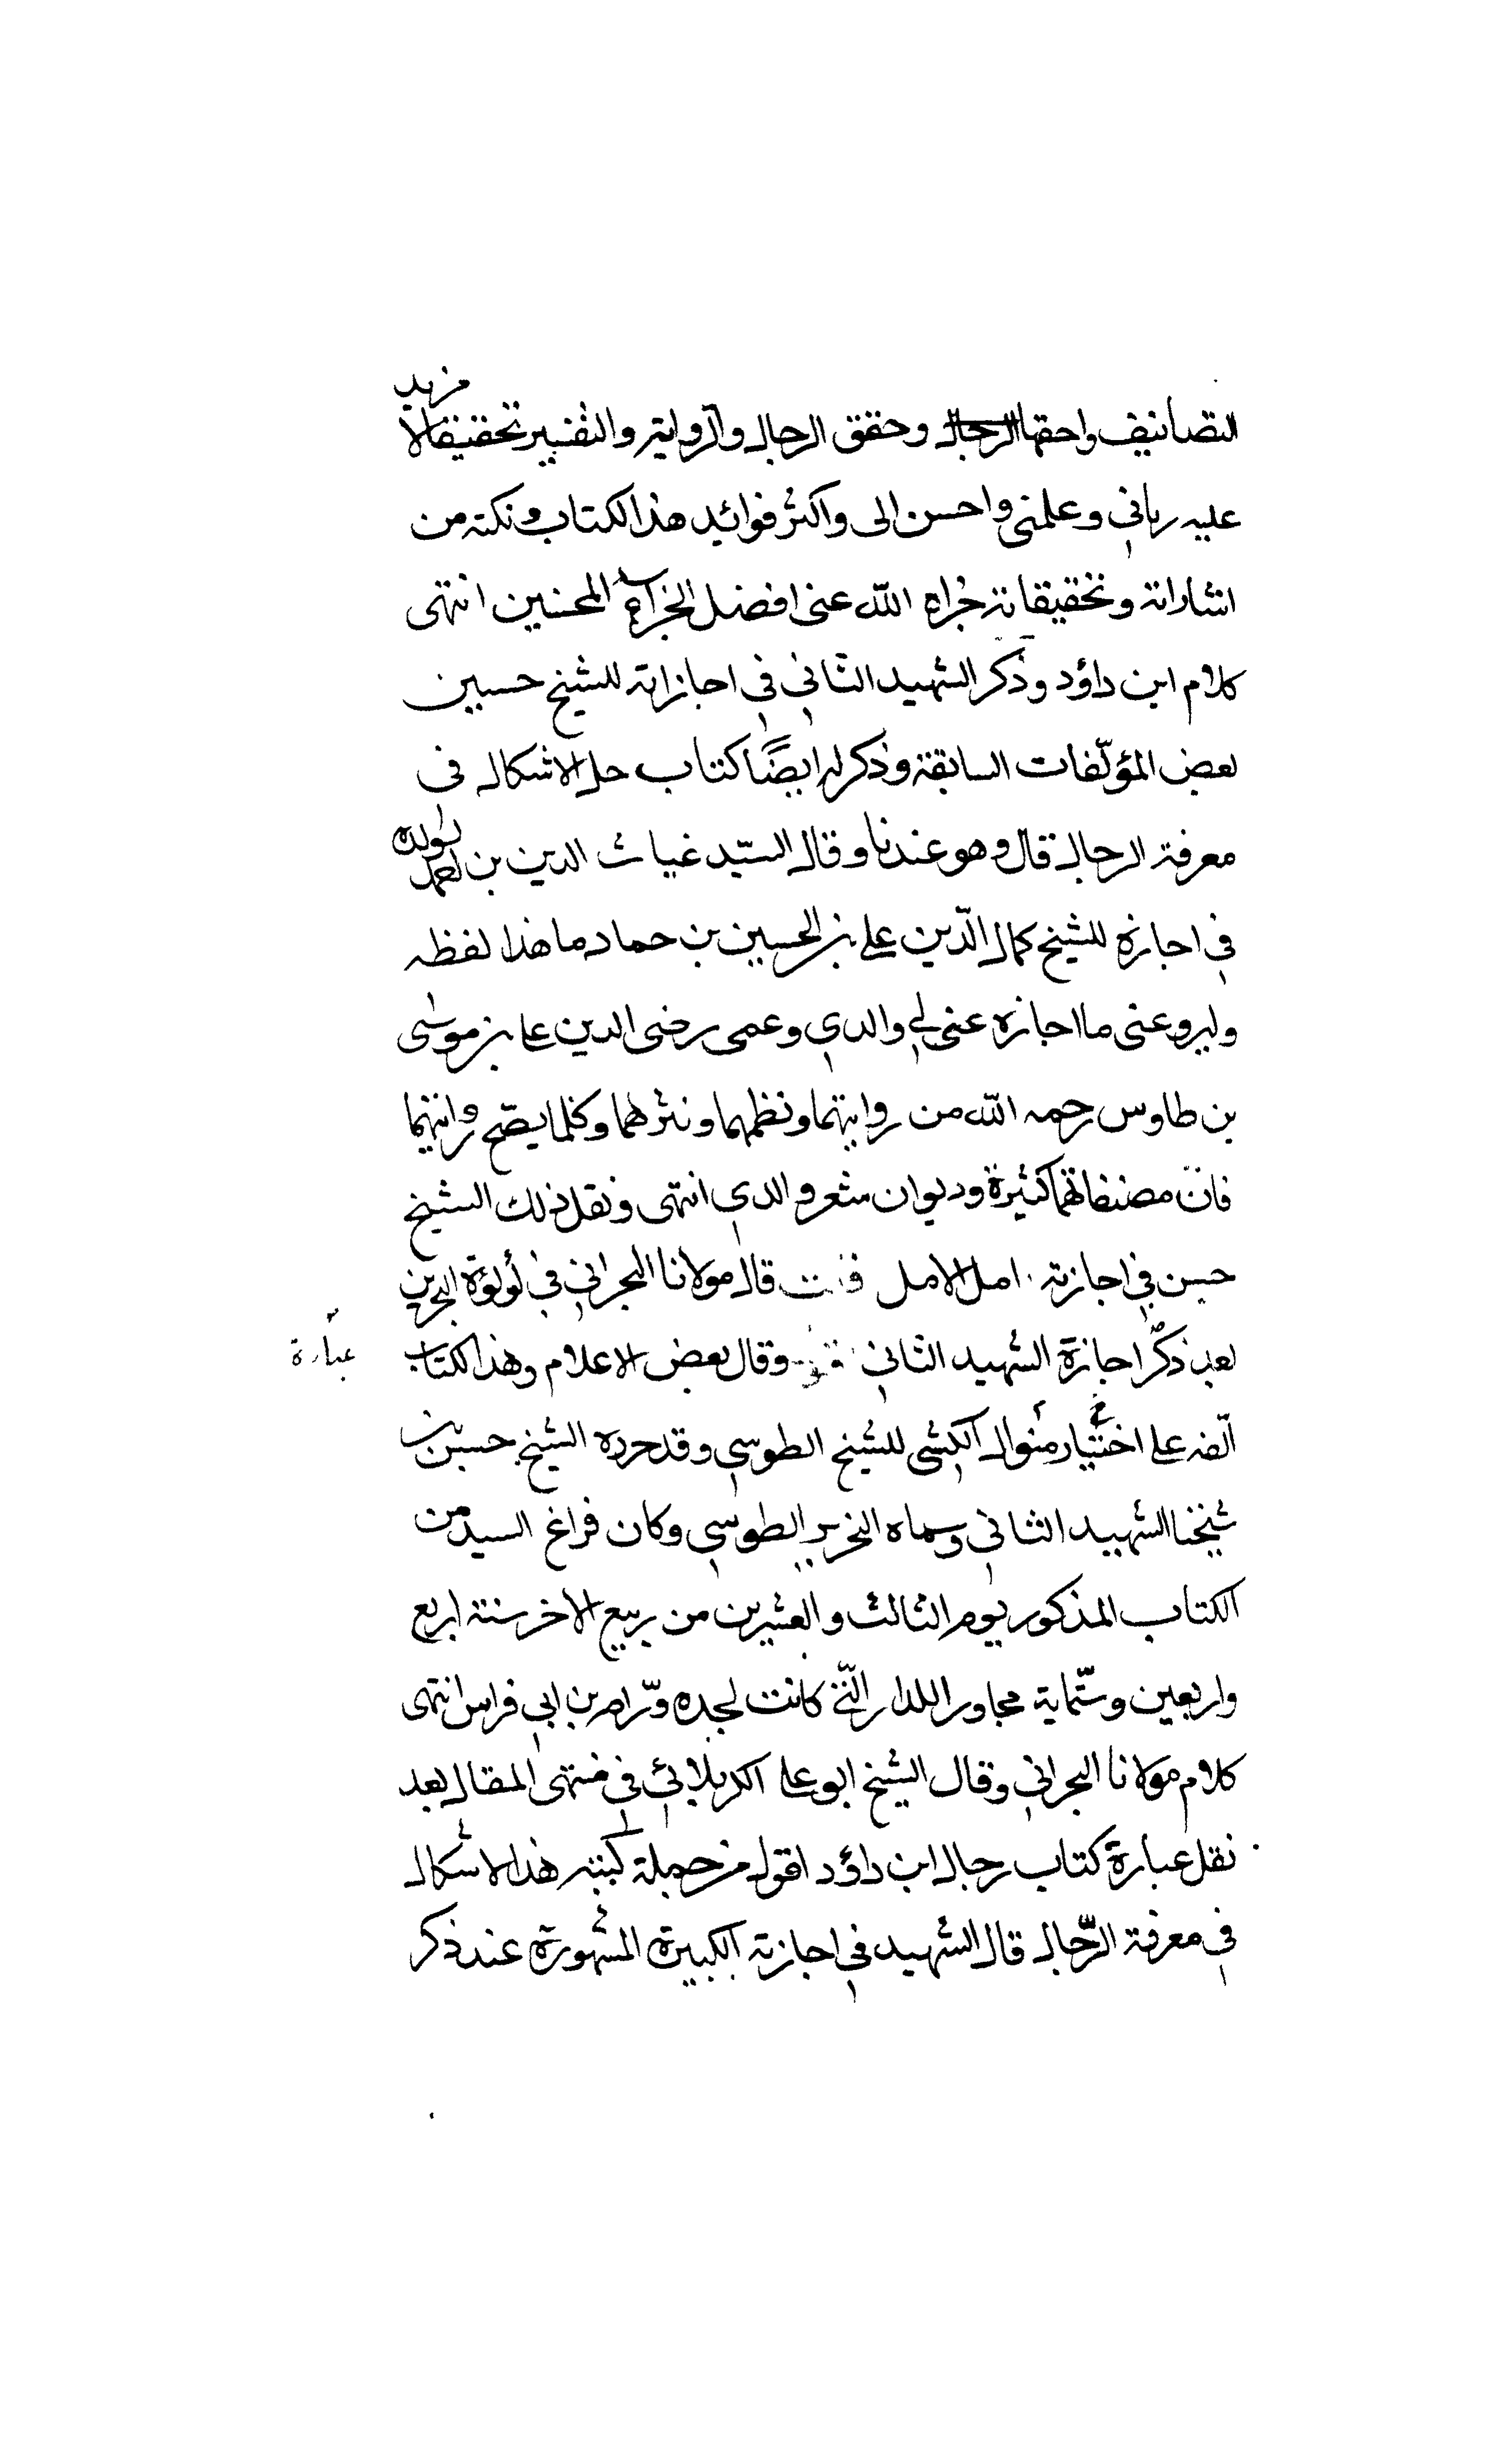 التصانيف واحقها الرجال وحقق الرجال والرواية والتفسير تحقيقا لا مزيد
عليه رباني وعلمني واحسن الى واكثر فوائد هذا الكتاب ونكته من
اشاراته وتحقيقاته جزاه الله عنى افضل الجزاء المحسنين انتهى
كلام ابن داؤد وذكر الشهيد الثاني في اجازاته للشيخ حسين
بعض المؤلّفات السابقة وذكر له ايضًا كتاب حل الاشكال فى
معرفة الرجال قال وهو عندنا وقال السيّد غياث الدين بن احمد
في اجازة للشيخ كمال الدّين علي بن الحسين بن حماد ما هذا لفظه
وليرو عنى ما اجازه عنى لي والدي وعمى رضى الدين على بن موسى
بن طاوس رحمه الله من روايتهما ونظمهما ونثرهما وكلما يصّح روايتهما
فانّ مصنفاتهما كثيرة وديوان شعر والدي انتهى ونقل ذلك الشيخ
حسن في اجازته امل الامل قال مولانا البحراني في لؤلؤة البحرين
بعد ذكر اجازة الشهيد الثاني وقال بعض الاعلام وهذا الكتاب
عبارة
الّفه على اختيار منوال الكشى للشيخ الطوسي وقد حرره الشيخ حسن بن
شيخنا الشهيد الثاني وسماه التحرير الطوسي وكان فراغ السيد من
الكتاب المذكور يوم الثالث والعشرين من ربيع الاخر سنة اربع
واربعين وستّماية مجاور اللدار الّتي كانت لجده ورّام بن ابي فراس انتهى
كلام مولانا البحراني وقال الشيخ ابو على الكربلائي في منتهى المقال بعد
نقل عبارة كتاب رجال ابن داؤد اقول من جملة كتبه هذا الاشكال
في معرفة الرّجال قال الشهيد في اجازته الكبيرة المشهورة عند ذكر